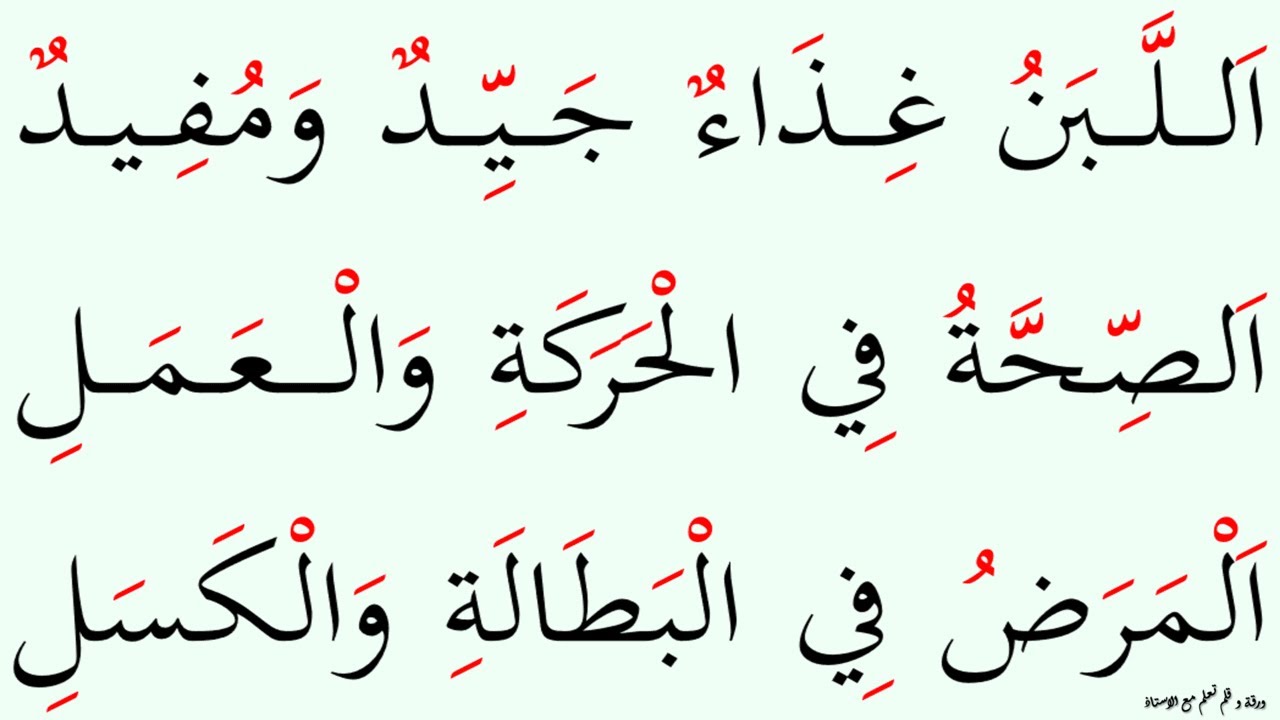 اَللَّبَنُ غِذَاءٌ جَيِّدٌ وَمُفِيدٌ
اَلصِّحَّةُ فِي الْحَرَكَةِ وَالْعَمَلِ
اَلْمَرَضُ فِي الْبَطَالَةِ وَالْكَسَلِ
ورقة و قلم تعلم مع الاستاذ